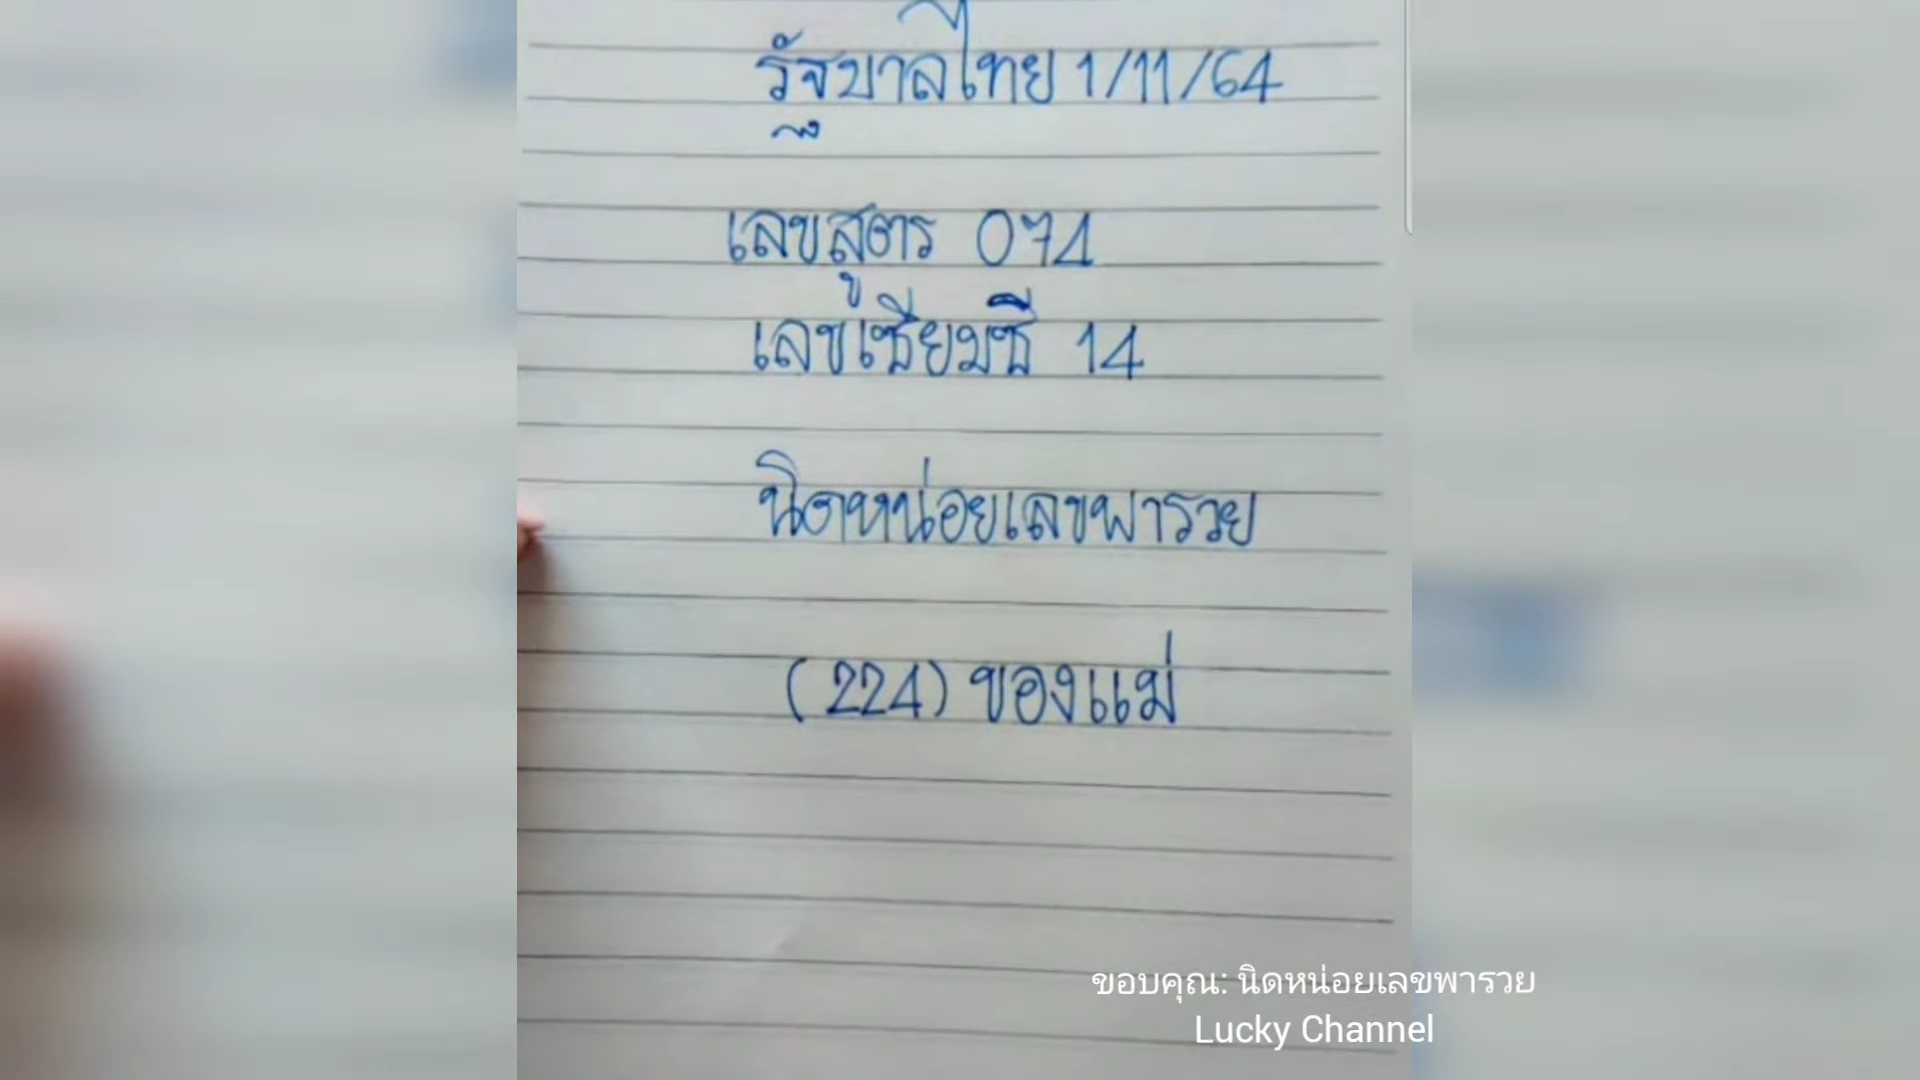 รัฐบาลไทย 1/11/64
เลขสูตร 074
เลขเซียมซี 14
นิดหน่อยเลขพารวย
(224) ของแม่
ขอบคุณ: นิดหน่อยเลขพารวย
Lucky Channel